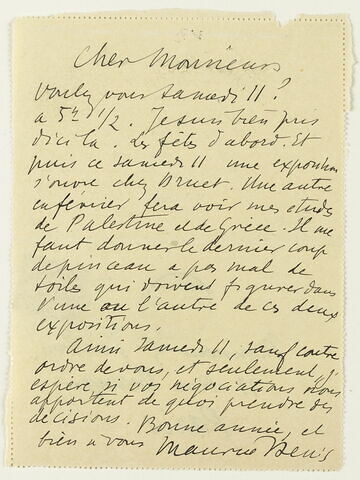 Cher Monsieur
voulez vous samedi 11 ?
a 5h 1/2. Je suis bien pris
d'ici là. Les fêtes d'abord. Et
puis ce samedi 11 une exposition
s'ouvre chez Druet. Une autre
en février fera voir mes études
de Palestine et de Grèce. Il me
faut donner le dernier coup
de pinceau a pas mal de
toiles qui doivent figurer dans
l'une ou l'autre de ces deux
expositions.
Ainsi samedi 11, sauf contre
ordre de vous, et seulement, j'
espère, si vos négociations nous
apportent de quoi prendre des
décisions. Bonne année, et
bien a vous Maurice Denis